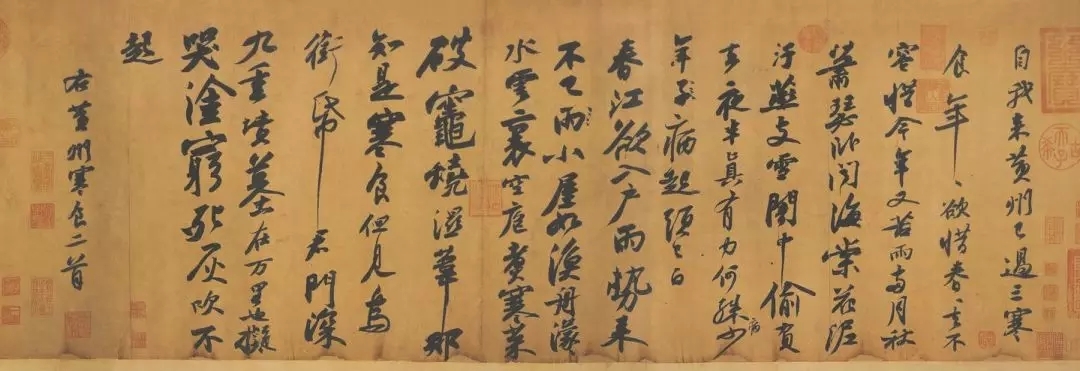 自我来黃州已過三寒
食年〻欲惜春〻去不
容惜今年又苦雨兩月秋
蕭瑟卧聞海棠花泥
汙燕支雪闇中偷負
去夜半真有力何殊少病
年子病起頭已白
春江欲入戶雨勢来
不已雨小屋如漁舟濛〻
水雲裏空庖煮寒菜
破竈燒濕葦那
知是寒食但見烏
銜帋君門深
九重墳墓在万里也擬
哭塗窮死灰吹不
起
右黃州寒食二首